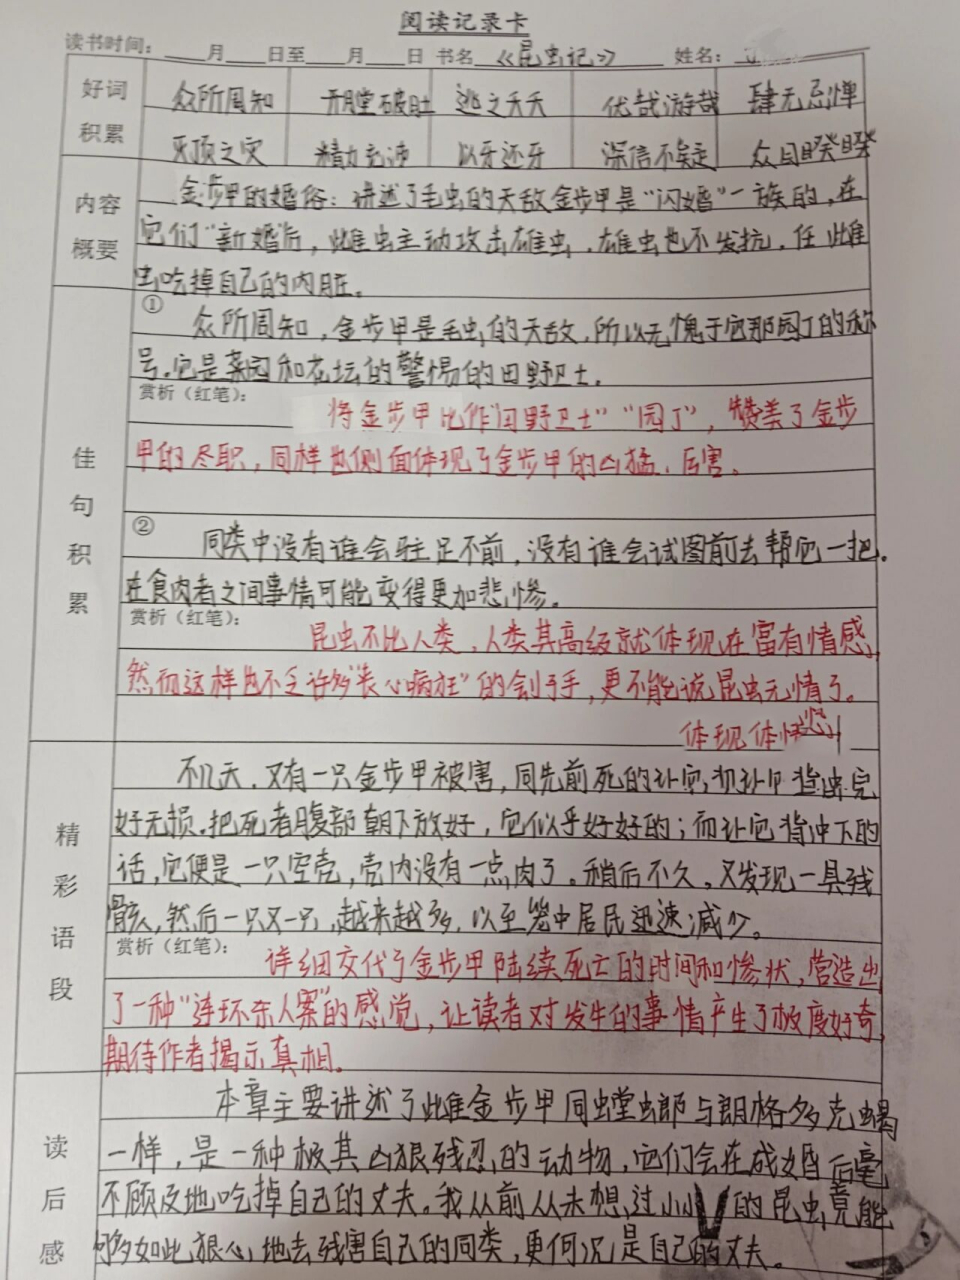 阅读记录卡
读书时间：____月____日至____月____日 书名《昆虫记》 姓名：
好词积累
众所周知 开膛破肚 逃之夭夭 优哉游哉 肆无忌惮
灭顶之灾 精力充沛 以牙还牙 深信不疑 众目睽睽
内容概要
金步甲的婚俗：讲述了毛虫的天敌金步甲是“闪婚”一族的，在
它们“新婚”后，雌虫主动攻击雄虫，雄虫也不发抗，任雌
虫吃掉自己的内脏。
佳句积累
①
众所周知，金步甲是毛虫的天敌，所以无愧于它那园丁的称
号。它是菜园和花坛的警惕的田野卫士。
赏析（红笔）：
将金步甲比作“田野卫士”“园丁”，赞美了金步
甲的尽职，同样也侧面体现了金步甲的凶猛、厉害。
②
同类中没有谁会驻足不前，没有谁会试图前去帮它一把。
在食肉者之间事情可能变得更加悲惨。
赏析（红笔）：
昆虫不比人类，人类其高级就体现在富有情感，
然而这样也不乏许多“丧心病狂”的刽子手，更不能说昆虫无情了。
体现体
精彩语段
不几天，又有一只金步甲被害，同先前死的
好无损。把死者腹部朝下放好，它似乎好好的；而让它背冲下的
话，它便是一只空壳，壳内没有一点肉了。稍后不久，又发现一具残
骸，然后一只又一只，越来越多，以至笼中居民迅速减少。
赏析（红笔）：
详细交代了金步甲陆续死亡的时间和惨状，营造出
了一种“连环杀人案”的感觉，让读者对发生的事情产生了极度好奇，
期待作者揭示真相。
读后感
本章主要讲述了雌金步甲同螳螂与朗格多克蝎
一样，是一种极其凶狠残忍的动物，它们会在成婚后毫
不顾及地吃掉自己的丈夫。我从前从未想过小小的昆虫竟能
够如此狠心地去残害自己的同类，更何况是自己的丈夫。